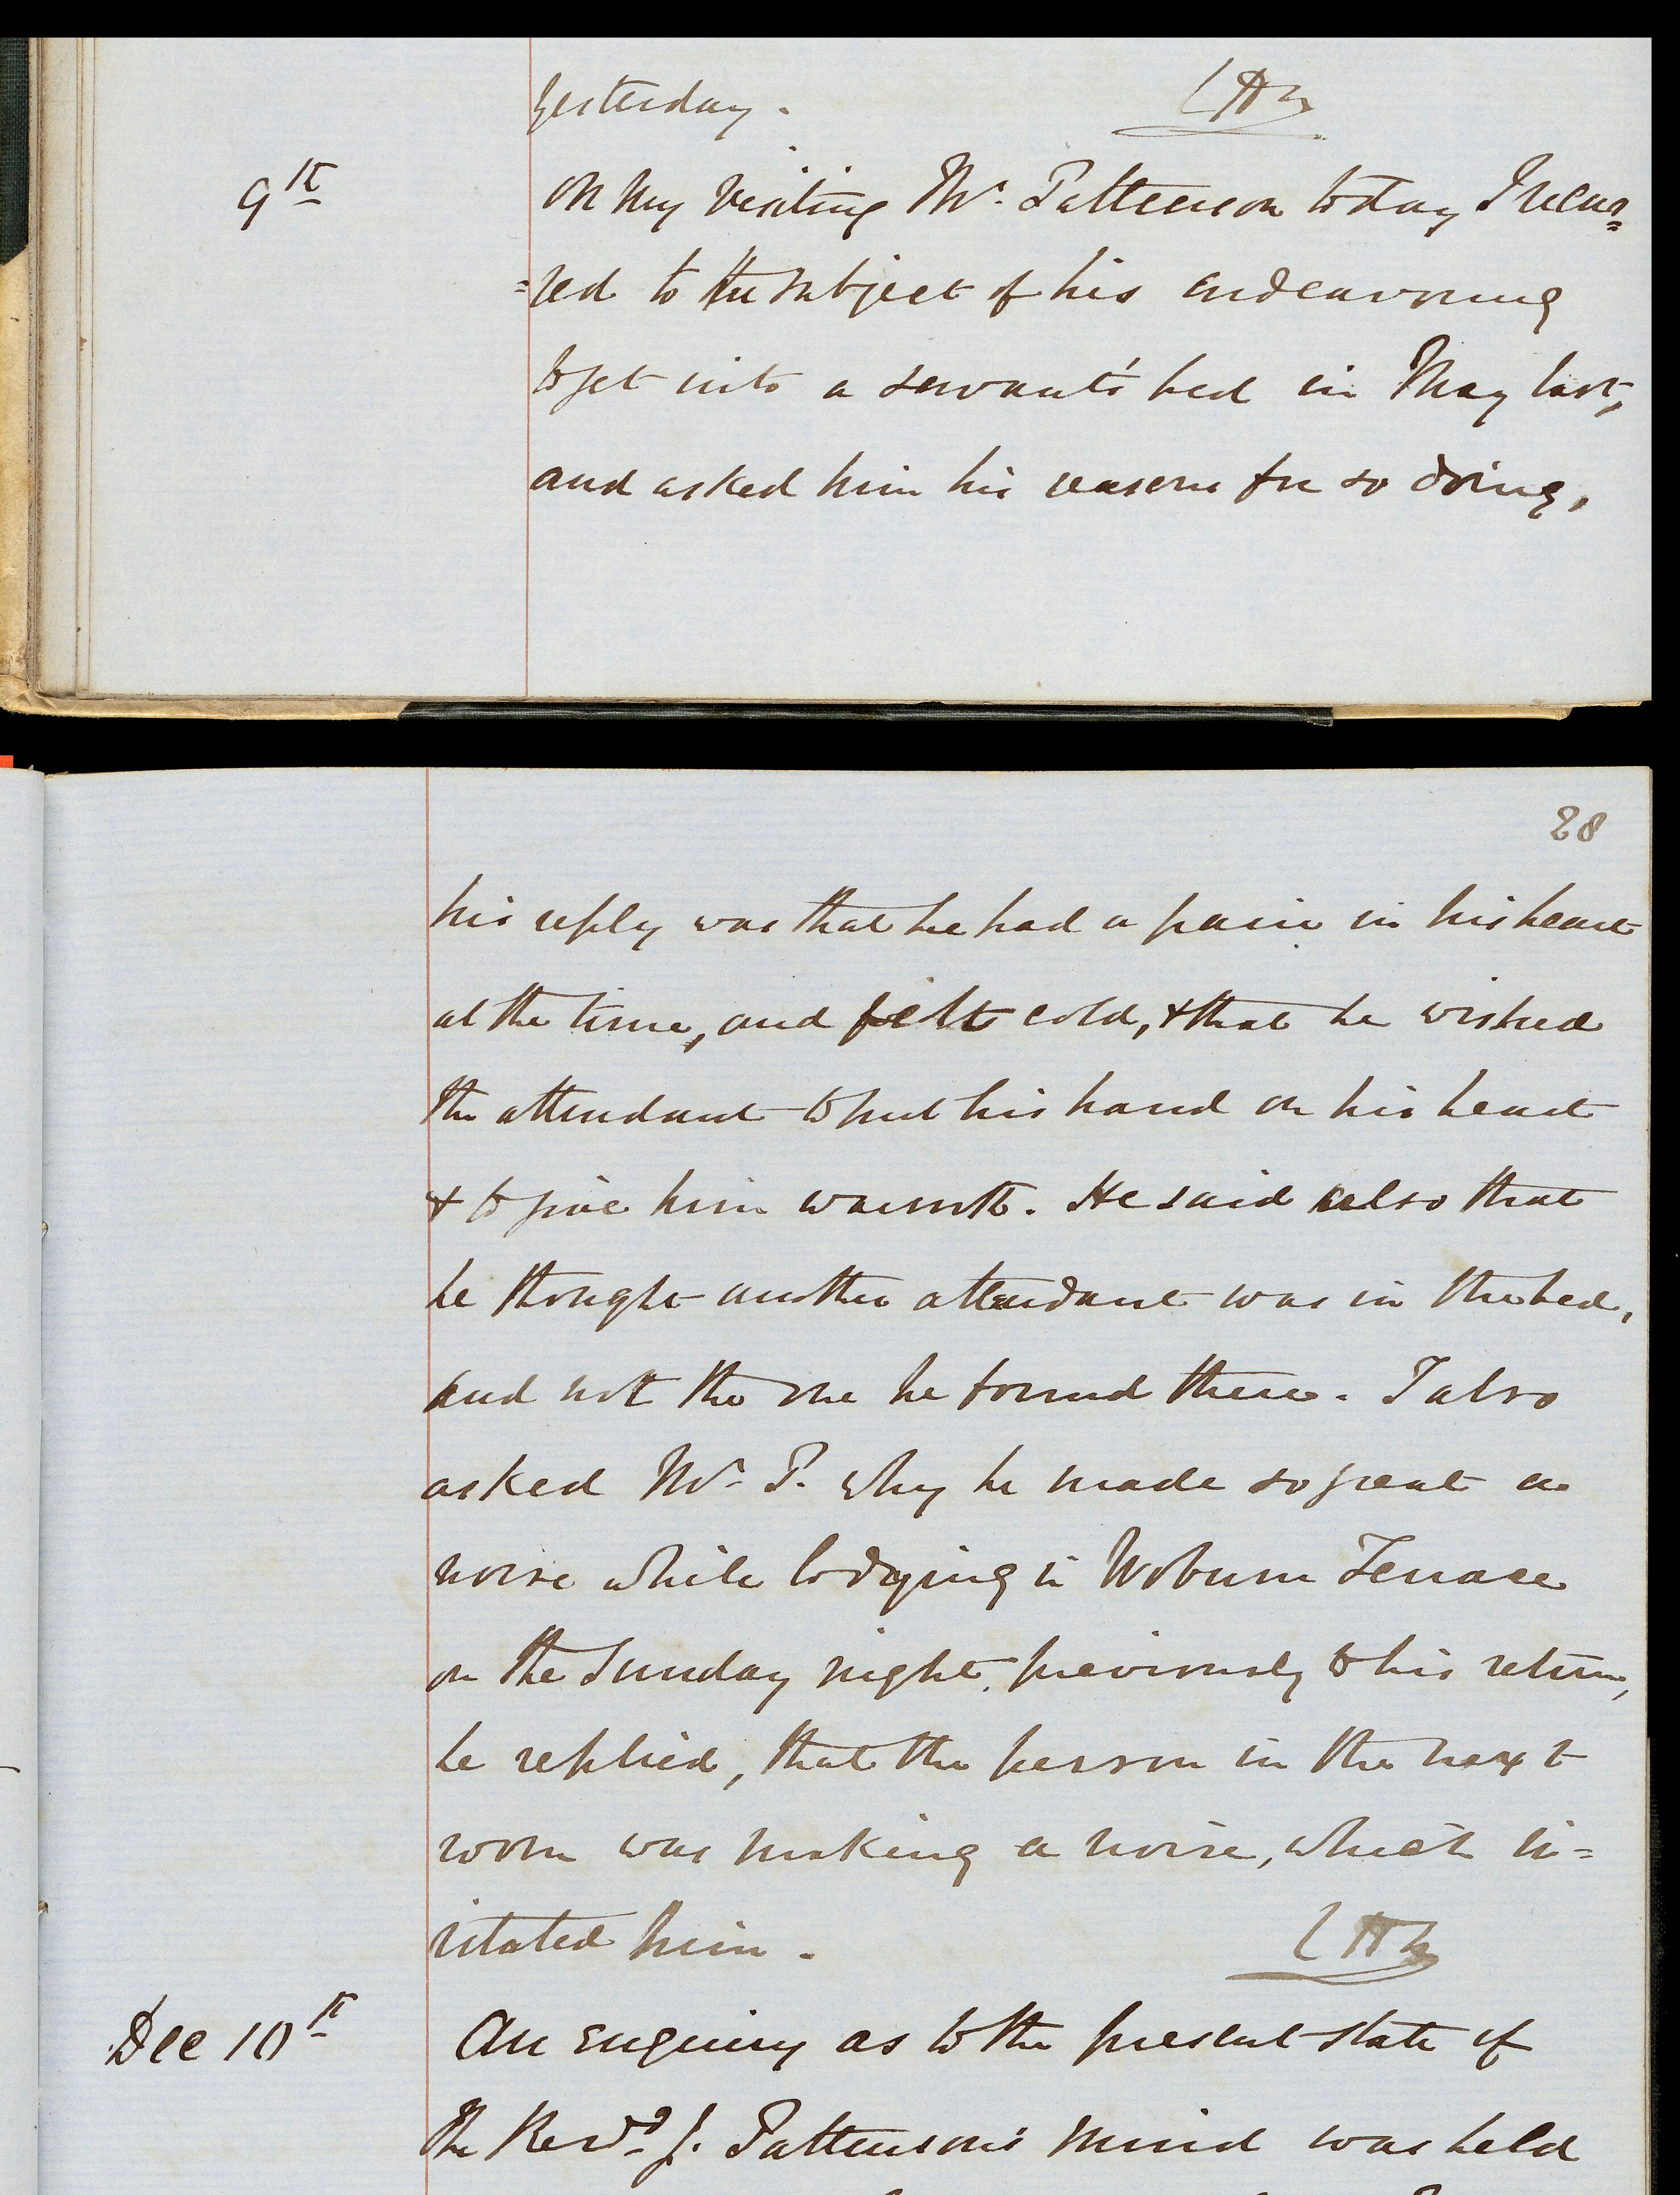 yesterday.
9th
On my visiting Mr. Pattenson today I recur=
=red to the subject of his endeavouring
to get into a servant's bed in May last,
and asked him his reasons for so doing,
28
his reply was that he had a pain in his heart
at the time, and felt cold, & that he wished
the attendant to put his hand on his heart
& to give him warmth. He said also that
he thought another attendant was in the bed,
and not the one he found there. I also
asked Mr. P. why he made so great a
noise while lodging in Woburn Terrace
on the Sunday night previously to his return,
he replied, that the person in the next
room was making a noise, which ir=
ritated him.
Dec 10th
An enquiry as to the present state of
the Revd. J. Pattenson's mind was held